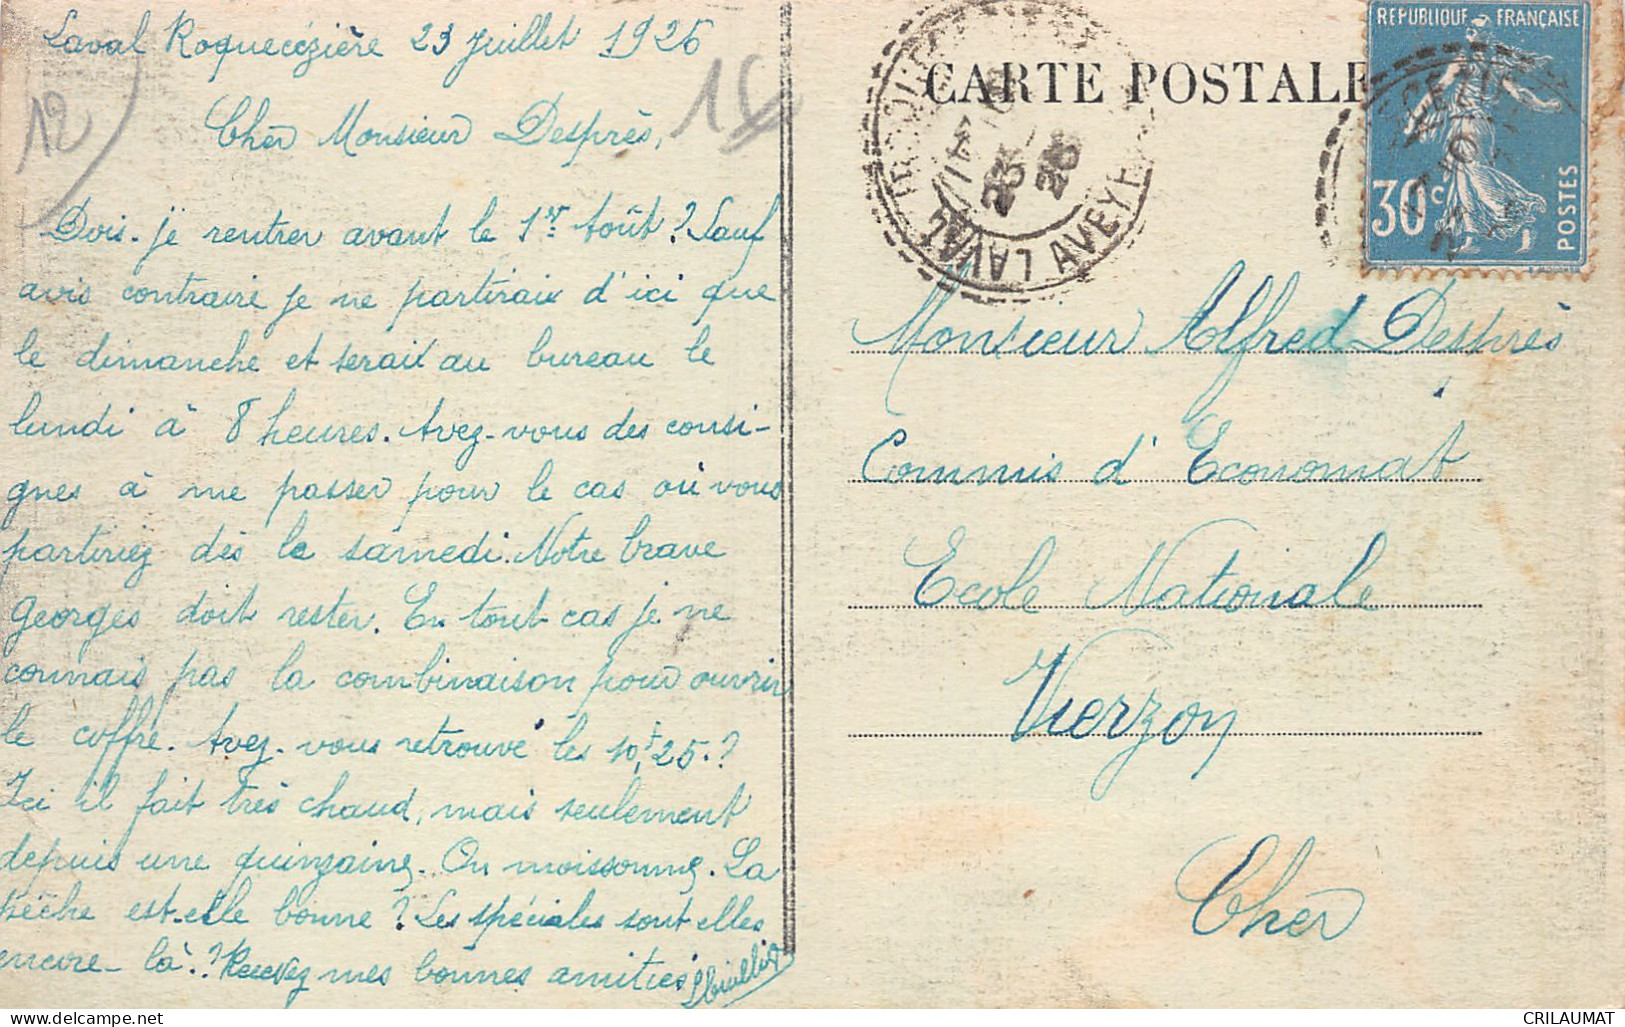 Laval Roquecézière 23 Juillet 1926
12
15
Cher Monsieur Desprès,
Dois-je rentrer avant le 1er Août ? Sauf
avis contraire je ne partirais d'ici que
le dimanche et serait au bureau le
lundi à 8 heures. Avez-vous des consi-
gnes à me passer pour le cas où vous
partiriez dès le samedi. Notre brave
Georges doit rester. En tout cas je ne
connais pas la combinaison pour ouvrir
le coffre. Avez-vous retrouvé les 10f,25.?
Ici il fait très chaud, mais seulement
depuis une quinzaine. On moissonne. La
pêche est-elle bonne ? Les spéciales sont elles
encore-là.? Recevez mes bonnes amitiés
CARTE POSTALE
LAVAL
LAVAL AVEYR
23
26
REPUBLIQUE FRANÇAISE
30c
POSTES
Monsieur Alfred Desprès
Commis d'Economat
Ecole Nationale
Vierzon
Cher
CRILAUMAT